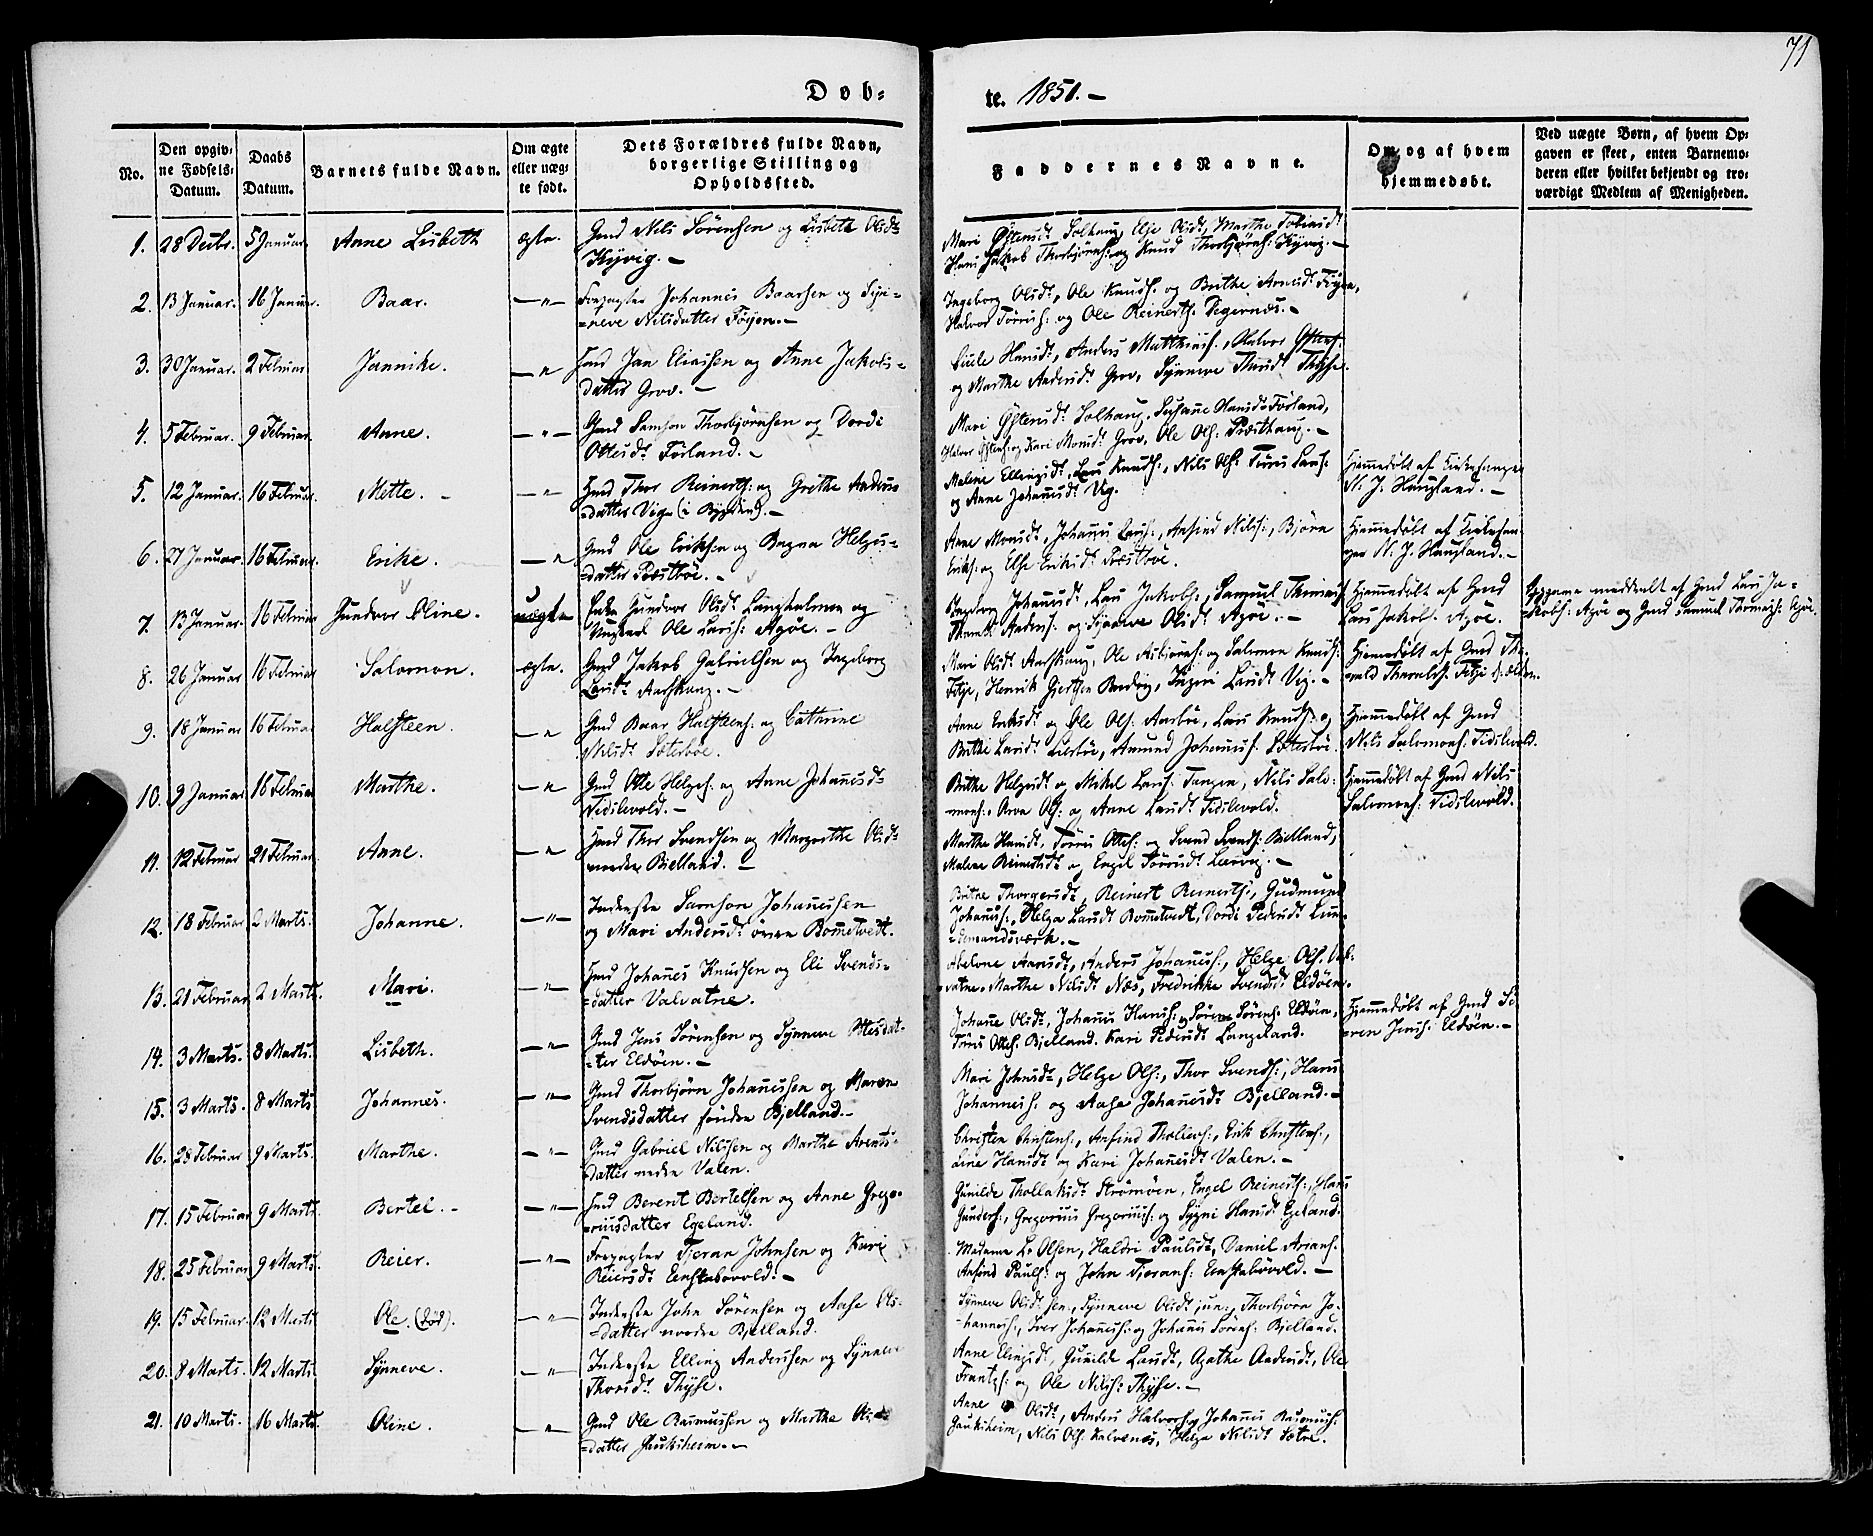 71
Døb-
te. 1851. –
No.
Den opgiv-
ne Fødsels-
Datum.
Daabs
Datum.
Barnets fulde Navn.
Om ægte
eller uæg-
te født.
Dets Forældres fulde Navn,
borgerlige Stilling og
Opholdssted.
Faddernes Navne.
Om og af hvem
hjemmedøbt.
Ved uægte Børn, af hvem Op-
gaven er skeet, enten Barnemo-
deren eller hvilket bekjendt og tro-
værdigt Medlem af Menigheden.
1. 28 Decbr. 5 Januar. Anne Lisbeth ægte. Gmd Nils Sörensen og Lisbeth Olsdt
Kyvig. –
Mari Östensdt Solhaug, Elje Olsdt, Marthe Tobiasdt
Hans Jakob Thorbjörns: og Knud Thorbjörns: Kyvig. –
2. 13 Januar. 16 Januar. Baar. –"– Forpagter Johannes Baarsen og Syn=
=neve Nilsdatter Föyen. –
Ingeborg Olsdt, Ole Knuds. og Brithe Arnesdt Föyen,
Halvor Törris: og Ole Reinerts. Degernæs. –
3. 30 Januar. 2 Februar Jannike. –" Hmd Jan Eliassen og Anne Jakobs=
datter Grov. –
Hansdt, Anders Matthias., Halvor Östens.
og Marthe Andersdt Grov, Synneve Thorsdt Thyse.
4. 5 Februar. 9 Februar. Anne. –"– Gmd Samson Thorbjörnsen og Dordi
Ottesdt Förland. –
Mari Östensdt Solhaug, Susanne Hansdt Förland,
Halvor Östens: og Kari Monsdt Grov, Ole Ols. Præsthaug. –
5. 12 Januar. 16 Februar. Mette. – –" Hmd Thor Reinerts: og Grethe Anders=
=datter Vig (i Bygden). –
Malene Ellingsdt, Lars Knuds., Nils Ols. Törris Lars:
og Anne Johannesdt Vig.
Hjemmedöbt af Kirkesanger
N. J. Haugland. –
6. 27 Januar. 16 Februar. Erike. –" Gmd Ole Eriksen og Ragna Helges=
=datter Præstböe. –
Anne Monsdt, Johannes Lars:, Anfind Nils:, Björn
Eriks: og Else Eriksdt Præstböe.
Hjemmedöbt af Kirkesan-
ger N. J. Haugland. –
7. 13 Januar. 16 Februar Gundvor Oline. uægte Enke Gundvor Olsdt Langholmen og
Ungkarl Ole Larss: Agöe. –
Ingeborg Johannesdt, Lars Jakobs., Samuel
Anders: og Synneve Olsdt Agöe. –
Hjemmedöbt af Gmd
Lars Jakobs. Agöe.
Opgaven meddeelt af Gmd Lars Ja=
=kobs: Agöe og Gmd Samuel Agöe.
8. 26 Januar 16 Februar Salomon. ægte. Gmd Jakob Gabrielsen og Ingeborg
Larsdt Aarskaug. –
Mari Olsdt Aarskaug, Ole Asbjörns: og Salomon Knuds:
Fitje, Henrik Giertsen Bredvig, Ingeri Larsdt Vig. –
Hjemmedöbt af Gmd Tha-
rald Tharalds. Fitje d: ælder.
9. 18 Januar 16 Februar Halsteen. –" Gmd Baar Halsteens: og Cathrine
Nilsdt Sæterböe.
Anne Eriksdt og Ole Ols. Aarböe, Lars Knuds. og
Brithe Larsdt Sæterböe, Amund Johannes. Sæterböe.
Hjemmedöbt af Gmd
Nils Salomons. Tidslevold.
10. 9 Januar 16 Februar Marthe. –" Gmd Otte Helges: og Anne Johannesdt
Tidslevold. –
Brithe Helgesdt og Mikel Lars: Tangen, Nils Salo-
mons: Arve Ols: og Anne Larsdt Tidslevold.
Hjemmedöbt af Gmd Nils
Salomons: Tidslevold.
11. 12 Februar 21 Februar. Anne. –" Hmd Thor Svendsen og Margrethe Olsdt
nordre Bjelland. –
Marthe Hansdt, Törris Ottes: og Svend Svends: Bjelland,
Malene Reinertsdt og Engel Törrisdt Lærvig. –
12. 18 Februar 2 Marts. Johanne. –"– Inderste Samson Johannessen
og Mari Andersdt övre Rommetvedt.
Brithe Thorgersdt, Reinert Reinerts:, Gudmund
Johannes., Helga Larsdt Rommetvedt, Dordi Pedersdt Lun-
=demandsværk. –
13. 21 Februar 2 Marts. Mari. –" Hmd Johannes Knudsen og Eli Svends=
=datter Valvatne.
Abelone Aanesdt, Anders Johannes., Helge Ols. Val-
vatne. Marthe Nilsdt Næs, Fredrikke Svendsdt Eldöen.
14. 3 Marts. 8 Marts. Lisbeth. –"– Gmd Jens Sörensen og Synneve Ottesdat-
=ter Eldöen. –
Johanne Olsdt, Johannes Hans: og Sören Sörens: Eldöen,
Törris Ottes. Bjelland. Kari Pedersdt Langeland.
Hjemmedöbt af Gmd Sö
ren Jens: Eldöen. –
15. 3 Marts. 8 Marts Johannes. –"– Gmd Thorbjörn Johannessen og Maren
Svendsdatter söndre Bjelland. –
Mari Johnsdt, Helge Ols:, Thor Svends:, Hans
Johannes. og Aase Johannesdt Bjelland. –
16. 28 Februar 9 Marts. Marthe. –"– Gmd Gabriel Nilssen og Marthe Arents=
datter nedre Valen.
Christen Christens:, Anfind Tholleivs:, Erik Christens:,
Line Hansdt og Kari Johannesdt Valen. –
17. 15 Februar 9 Marts. Bertel. – –"– Hmd Berent Bertelsen og Anne Grego-
=riusdatter Egeland.
Gunilde Thollaksdt Strömöen, Engel Reinerts:, Hans
Gunders:, Gregorius Gregorius: og Sygni Hansdt Egeland.
18. 25 Februar 9 Marts. Reier. –"– Forpagter Tjeran Johnsen og Kari
Reiersdt Eenstabövold. –
Madame L. Olsen, Haldri Paulsdt, Daniel Arians.
Anfind Pauls: og John Tjerans: Eenstabövold. –
19. 15 Februar. 12 Marts Ole. (död). –"– Inderste John Sörensen og Aase Ols-
=datter nordre Bjelland.
Synneve Olsdt sen., Synneve Olsdt jun., Thorbjörn Jo-
=hannes., Iver Johannes: og Johannes Sörens: Bjelland.
20. 8 Marts. 12 Marts Synneve. –"– Inderste Elling Anderssen og Synneve
Thorsdt Thyse.
Anne Elingsdt, Gunilde Larsdt, Agathe Andersdt, Ole
Frants: og Ole Nils: Thyse. –
21. 10 Marts. 16 Marts Oline. –"– Gmd Ole Rasmussen og Marthe Ols=
=datter Gauksheim. –
Anne Olsdt, Anders Halvors. og Johannes Rasmus:
Gauksheim, Nils Ols. Kalvenes, Helga Nilsdt Sætre.